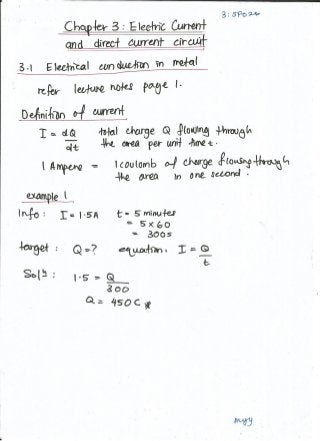 3:5PO24
Chapter 3: Electric Current
and direct current circuit
3.1 Electrical conduction in metal
refer lecture notes page 1.
Definition of current
I = dQ/dt total charge Q flowing through
the area per unit time t.
1 Ampere = 1 coulomb of charge flowing through
the area in one second.
example 1
Info: I = 1.5A t = 5 minutes
= 5 x 60
= 300s
target: Q = ? equation: I = Q/t
Solⁿ: 1.5 = Q/300
Q = 450C *
myy